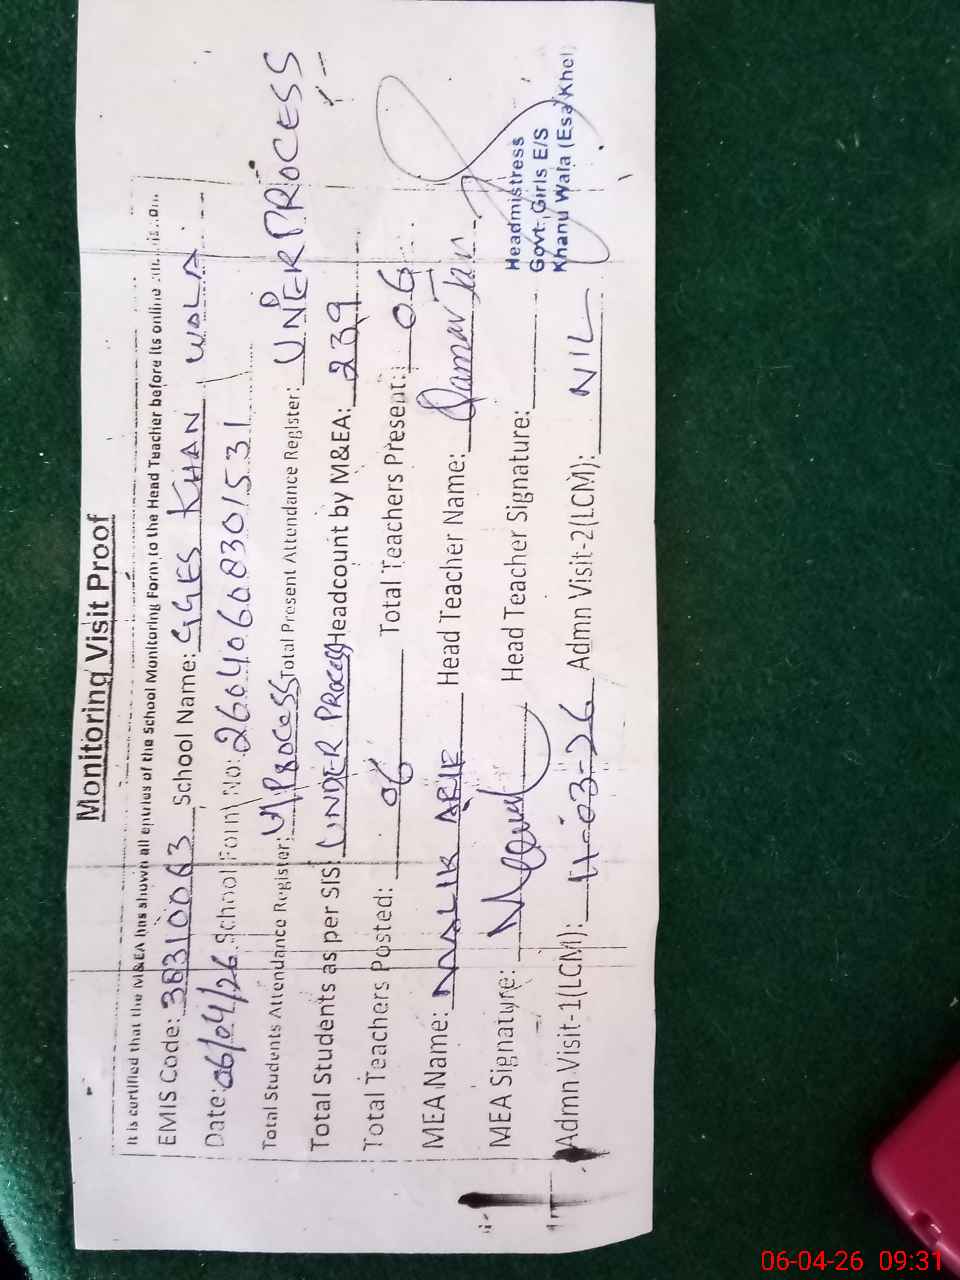 Monitoring Visit Proof
It is certified that the M&EA has shown all entries of the School Monitoring Form to the Head Teacher before its online
EMIS Code: 38310063 School Name: GGES KHAN WALA
Date: 06/04/26 School Form No: 26040608301531
Total Students Attendance Register: U/PROCESS Total Present Attendance Register: UNDER PROCESS
Total Students as per SIS: UNDER PROCESS Headcount by M&EA: 239
Total Teachers Posted: 06 Total Teachers Present: 06
MEA Name: MALIK ARIF Head Teacher Name: Qamar Jan
MEA Signature: Head Teacher Signature:
Admn Visit-1(LCM): 11-03-26 Admn Visit-2(LCM): NIL
Headmistress
Govt. Girls E/S
Khanu Wala (Esa Khel)
06-04-26 09:31